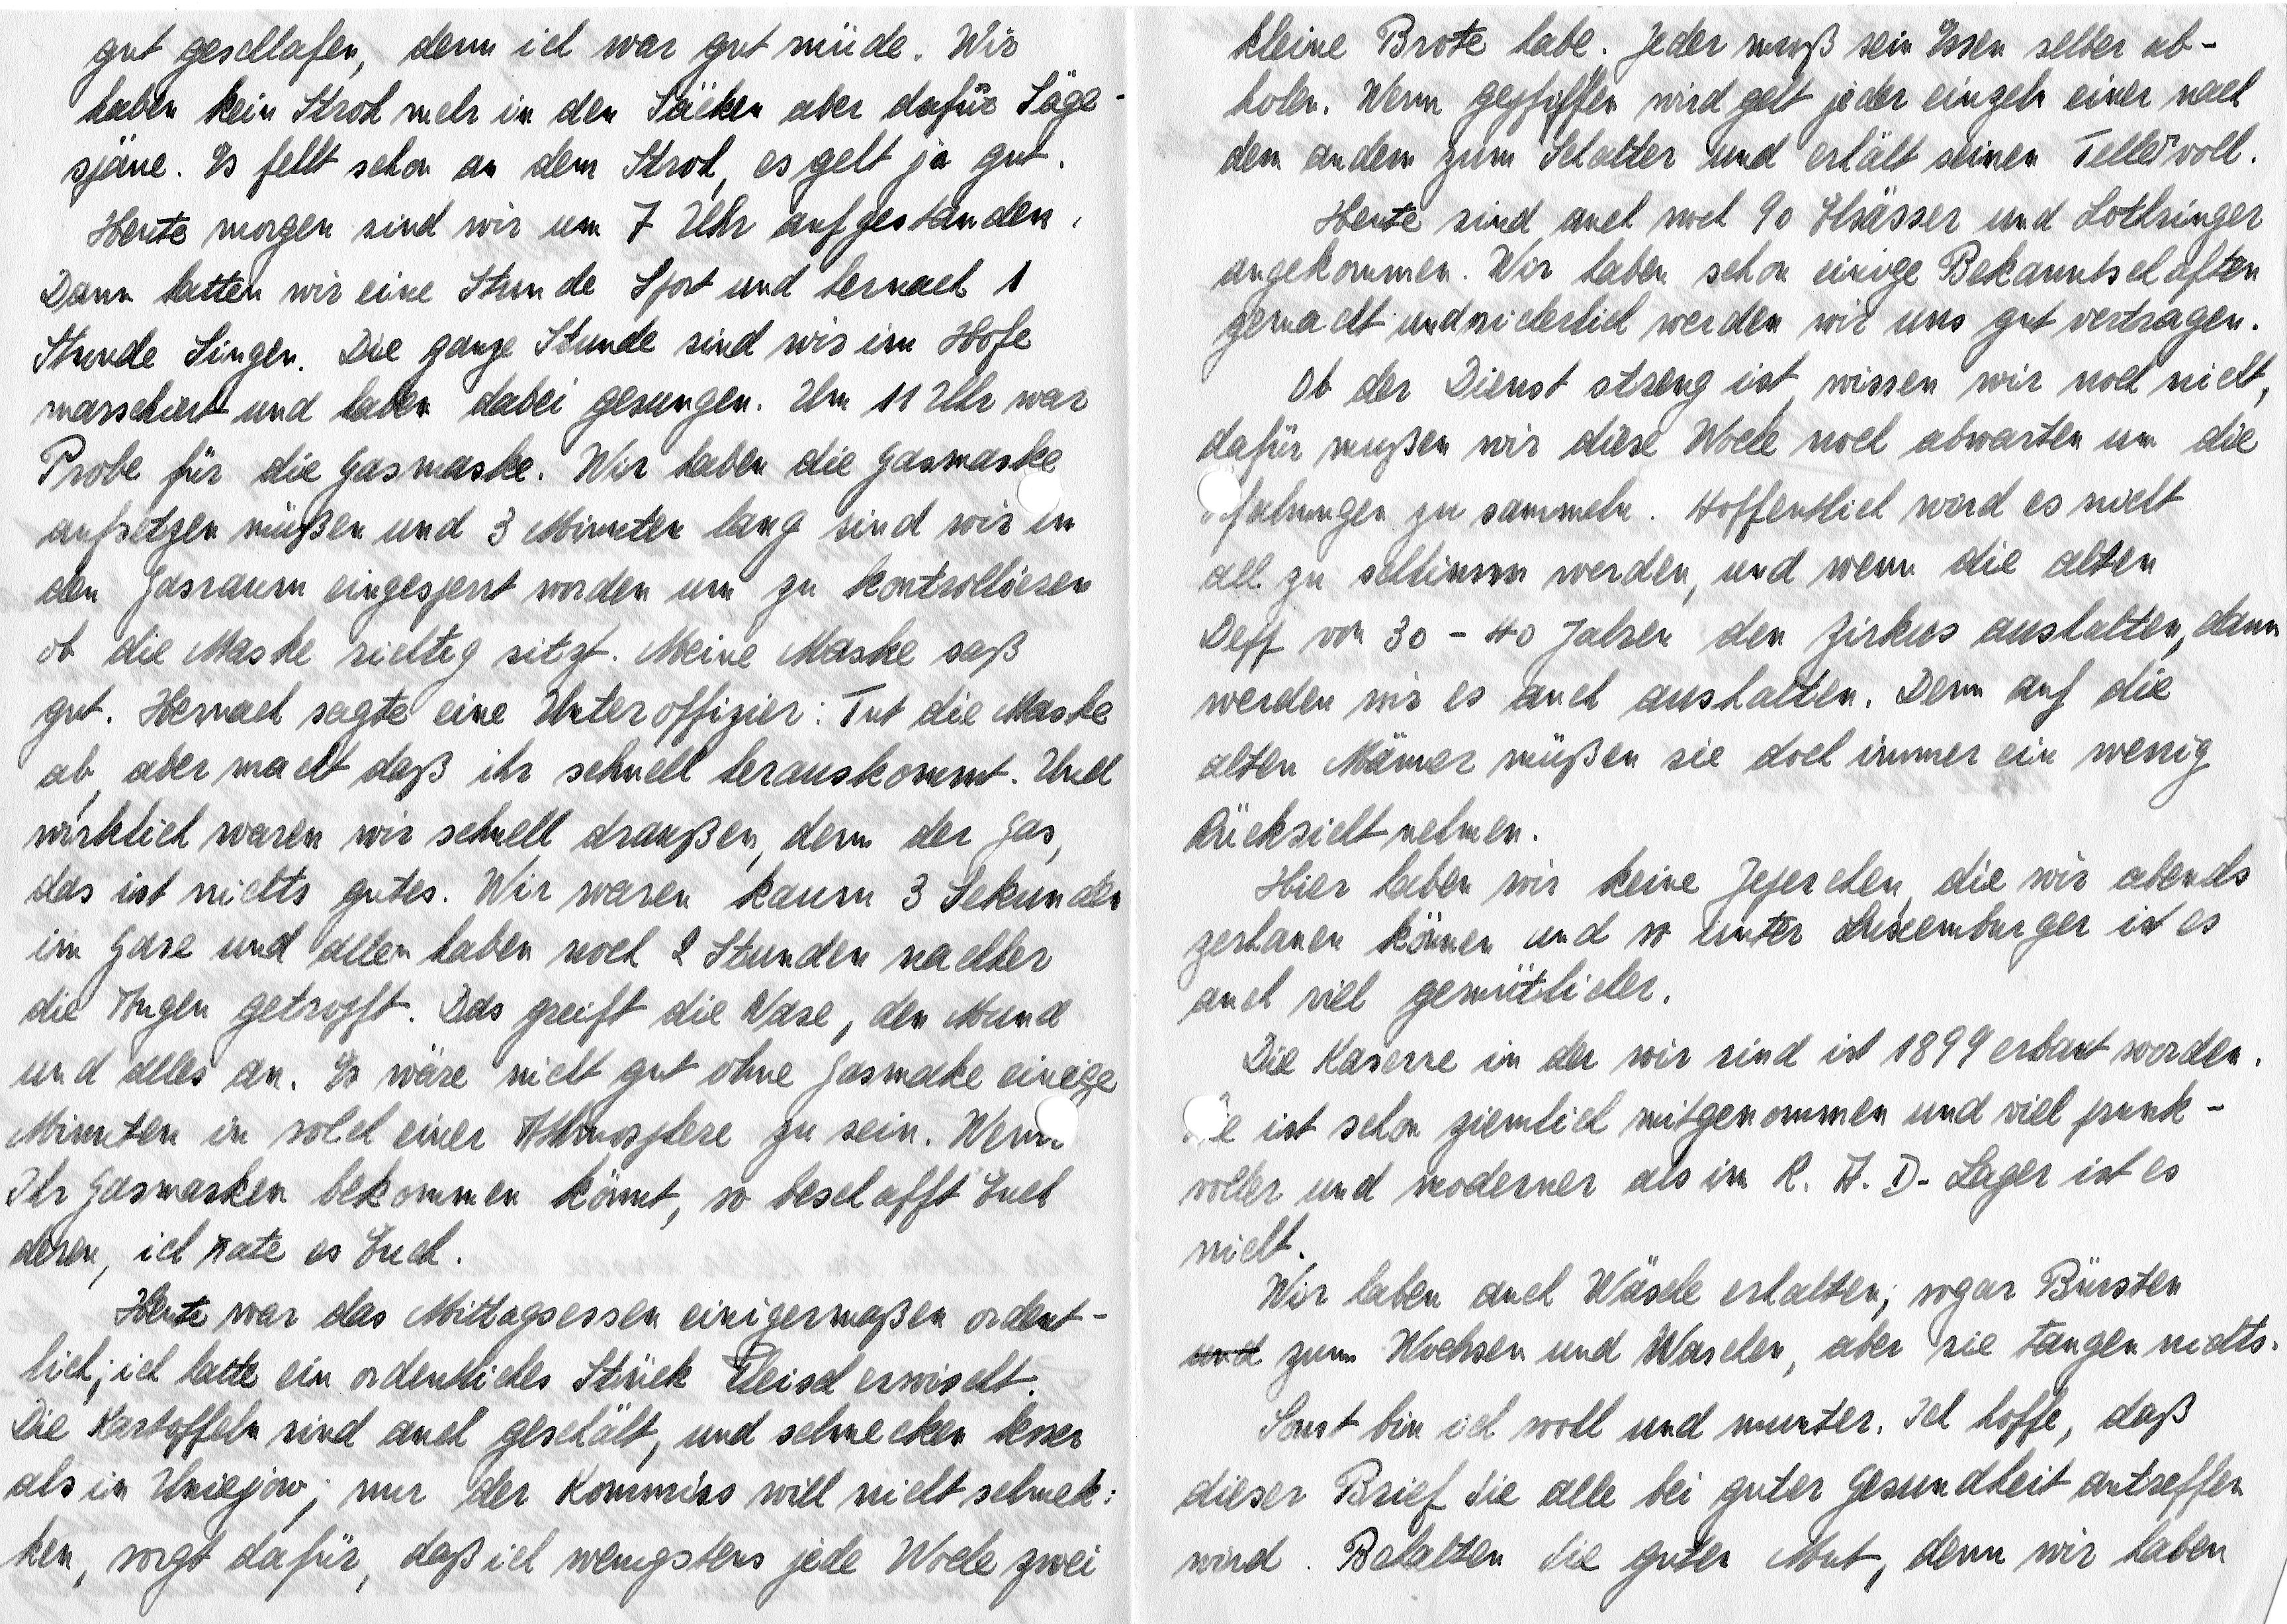 gut geschlafen, denn ich war gut müde. Wir
haben kein Stroh mehr in den Säcken aber dafür Säge-
späne. Es fehlt schon an dem Stroh, es geht ja gut.
Heute morgen sind wir um 7 Uhr aufgestanden.
Dann hatten wir eine Stunde Sport und hernach 1
Stunde Singen. Die ganze Stunde sind wir im Hofe
marschiert und haben dabei gesungen. Um 11 Uhr war
Probe für die Gasmaske. Wir haben die Gasmaske
aufsetzen müßen und 3 Minuten lang sind wir in
den Gasraum eingesperrt worden um zu kontrollieren
ob die Maske richtig sitzt. Meine Maske saß
gut. Hernach sagte eine Unteroffizier: Tut die Maske
ab, aber macht daß ihr schnell herauskommt. Und
wirklich waren wir schnell draußen, denn der Gas,
das ist nichts gutes. Wir waren kaum 3 Sekunden
im Gase und allen haben noch 2 Stunden nachher
die Augen getropft. Das greift die Nase, den Mund
und alles an. Es wäre nicht gut ohne Gasmake einige
Minuten in solch einer Athmosphere zu sein. Wenn
Ihr Gasmasken bekommen könnt, so beschafft Euch
deren, ich rate es Euch.
Heute war das Mittagsessen einigermaßen ordent-
lich; ich hatte ein ordentliches Stück Fleisch erwischt.
Die Kartoffeln sind auch geschält, und schmecken besser
als in Uniejow; nur der Kommiss will nicht schmek:
ken, sorgt dafür, daß ich wenigstens jede Woche zwei
kleine Brote habe. Jeder muß sein Essen selber ab-
holen. Wenn gepfiffen wird geht jeder einzeln einer nach
dem andern zum Schalter und erhält seinen Teller voll.
Heute sind auch noch 90 Elsässer und Lothringer
angekommen. Wir haben schon einige Bekanntschaften
gemacht und sicherlich werden wir uns gut vertragen.
Ob der Dienst streng ist, wissen wir noch nicht,
dafür mußen wir diese Woche noch abwarten um die
fahrungen zu sammeln. Hoffentlich wird es nicht
all zu schlimm werden, und wenn die alten
Depp von 30 - 40 Jahren den Zirkus aushalten, dann
werden wir es auch aushalten. Denn auf die
alten Männer müßen sie doch immer ein wenig
Rücksicht nehmen.
Hier haben wir keine die wir abends
zerhauen können und so unter Luxemburger ist es
auch viel gemütlicher.
Die Kaserre in der wir sind ist 1899 erbaut worden.
Sie ist schon ziemlich mitgenommen und viel prunk-
voller und moderner als im R. A. D. Lager ist es
nicht.
Wir haben auch Wäsche erhalten; sogar Bürsten
und zum Wochsen und Waschen, aber sie taugen nichts.
Sonst bin ich wohl und munter. Ich hoffe, daß
dieser Brief Sie alle bei guter Gesundheit antreffen
wird. Behalten Sie guten Mut, denn wir haben